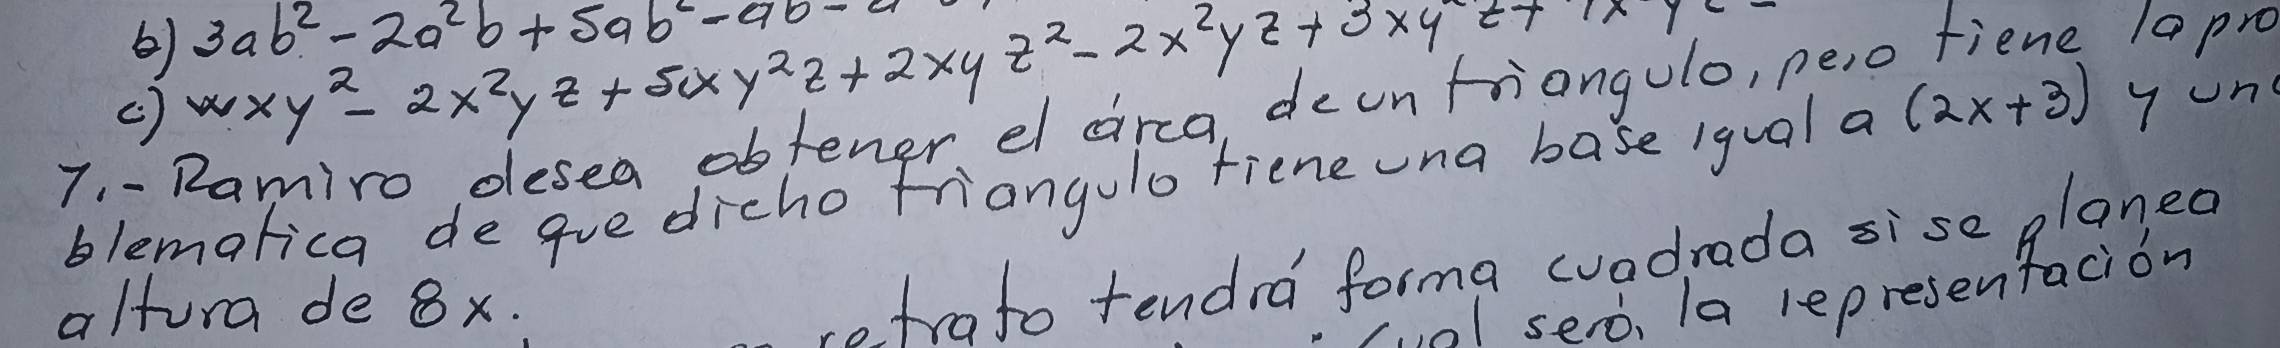 b) 3ab² - 2a²b + 5ab² - ab -
c) wxy² - 2x²yz + 5xy²z + 2xyz² - 2x²yz + 3xy²z +
7.- Ramiro desea obtener el área de un triangulo, pero tiene la pro
blematica de que dicho triangulo tiene una base igual a (2x+3) y un
altura de 8x.
retrato tendrá forma cuadrada si se planea
Cual será la representación